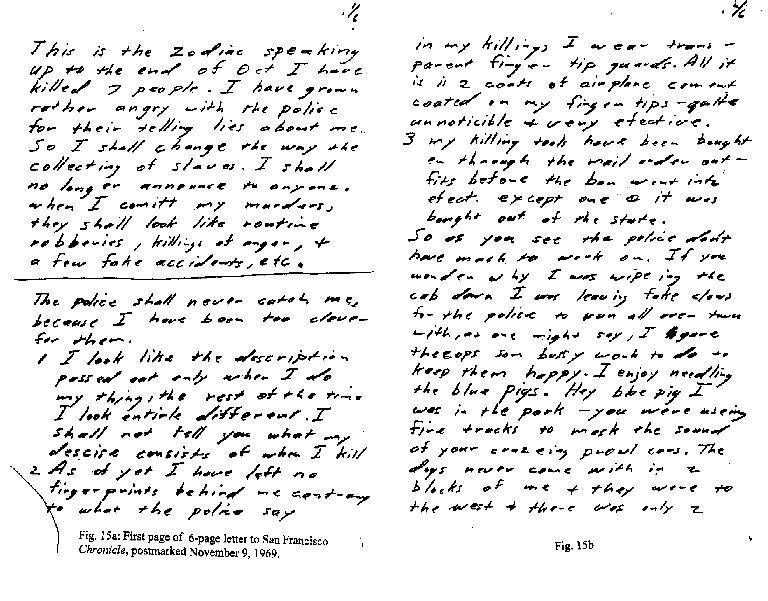 1/6
This is the Zodiac speaking
up to the end of Oct I have
killed 7 people. I have grown
rather angry with the police
for their telling lies about me.
So I shall change the way the
collecting of slaves. I shall
no longer announce to anyone.
when I comitt my murders,
they shall look like routine
robberies, killings of anger, +
a few fake accidents, etc.
The police shall never catch me,
because I have been too clever
for them.
1 I look like the description
passed out only when I do
my thing, the rest of the time
I look entirle different. I
shall not tell you what my
descise consists of when I kill
2 As of yet I have left no
fingerprints behind me contrary
to what the police say
Fig. 15a: First page of 6-page letter to San Francisco
Chronicle, postmarked November 9, 1969.
2/6
in my killings I wear trans -
parent finger tip guards. All it
is is 2 coats of airplane cement
coated on my finger tips - quite
unnoticible + very efective.
3 my killing tools have been bought
en through the mail order out-
fits before the ban went into
efect. except one & it was
bought out of the state.
So as you see the police don't
have much to work on. If you
wonder why I was wipeing the
cab down I was leaving fake clews
for the police to run all over town
with, as one might say, I gave
the cops som bussy work to do to
keep them happy. I enjoy needling
the blue pigs. Hey blue pig I
was in the park - you were useing
fire trucks to mask the sound
of your cruzeing prowl cars. The
dogs never came with in 2
blocks of me + they were to
the west + there was only 2
Fig. 15b